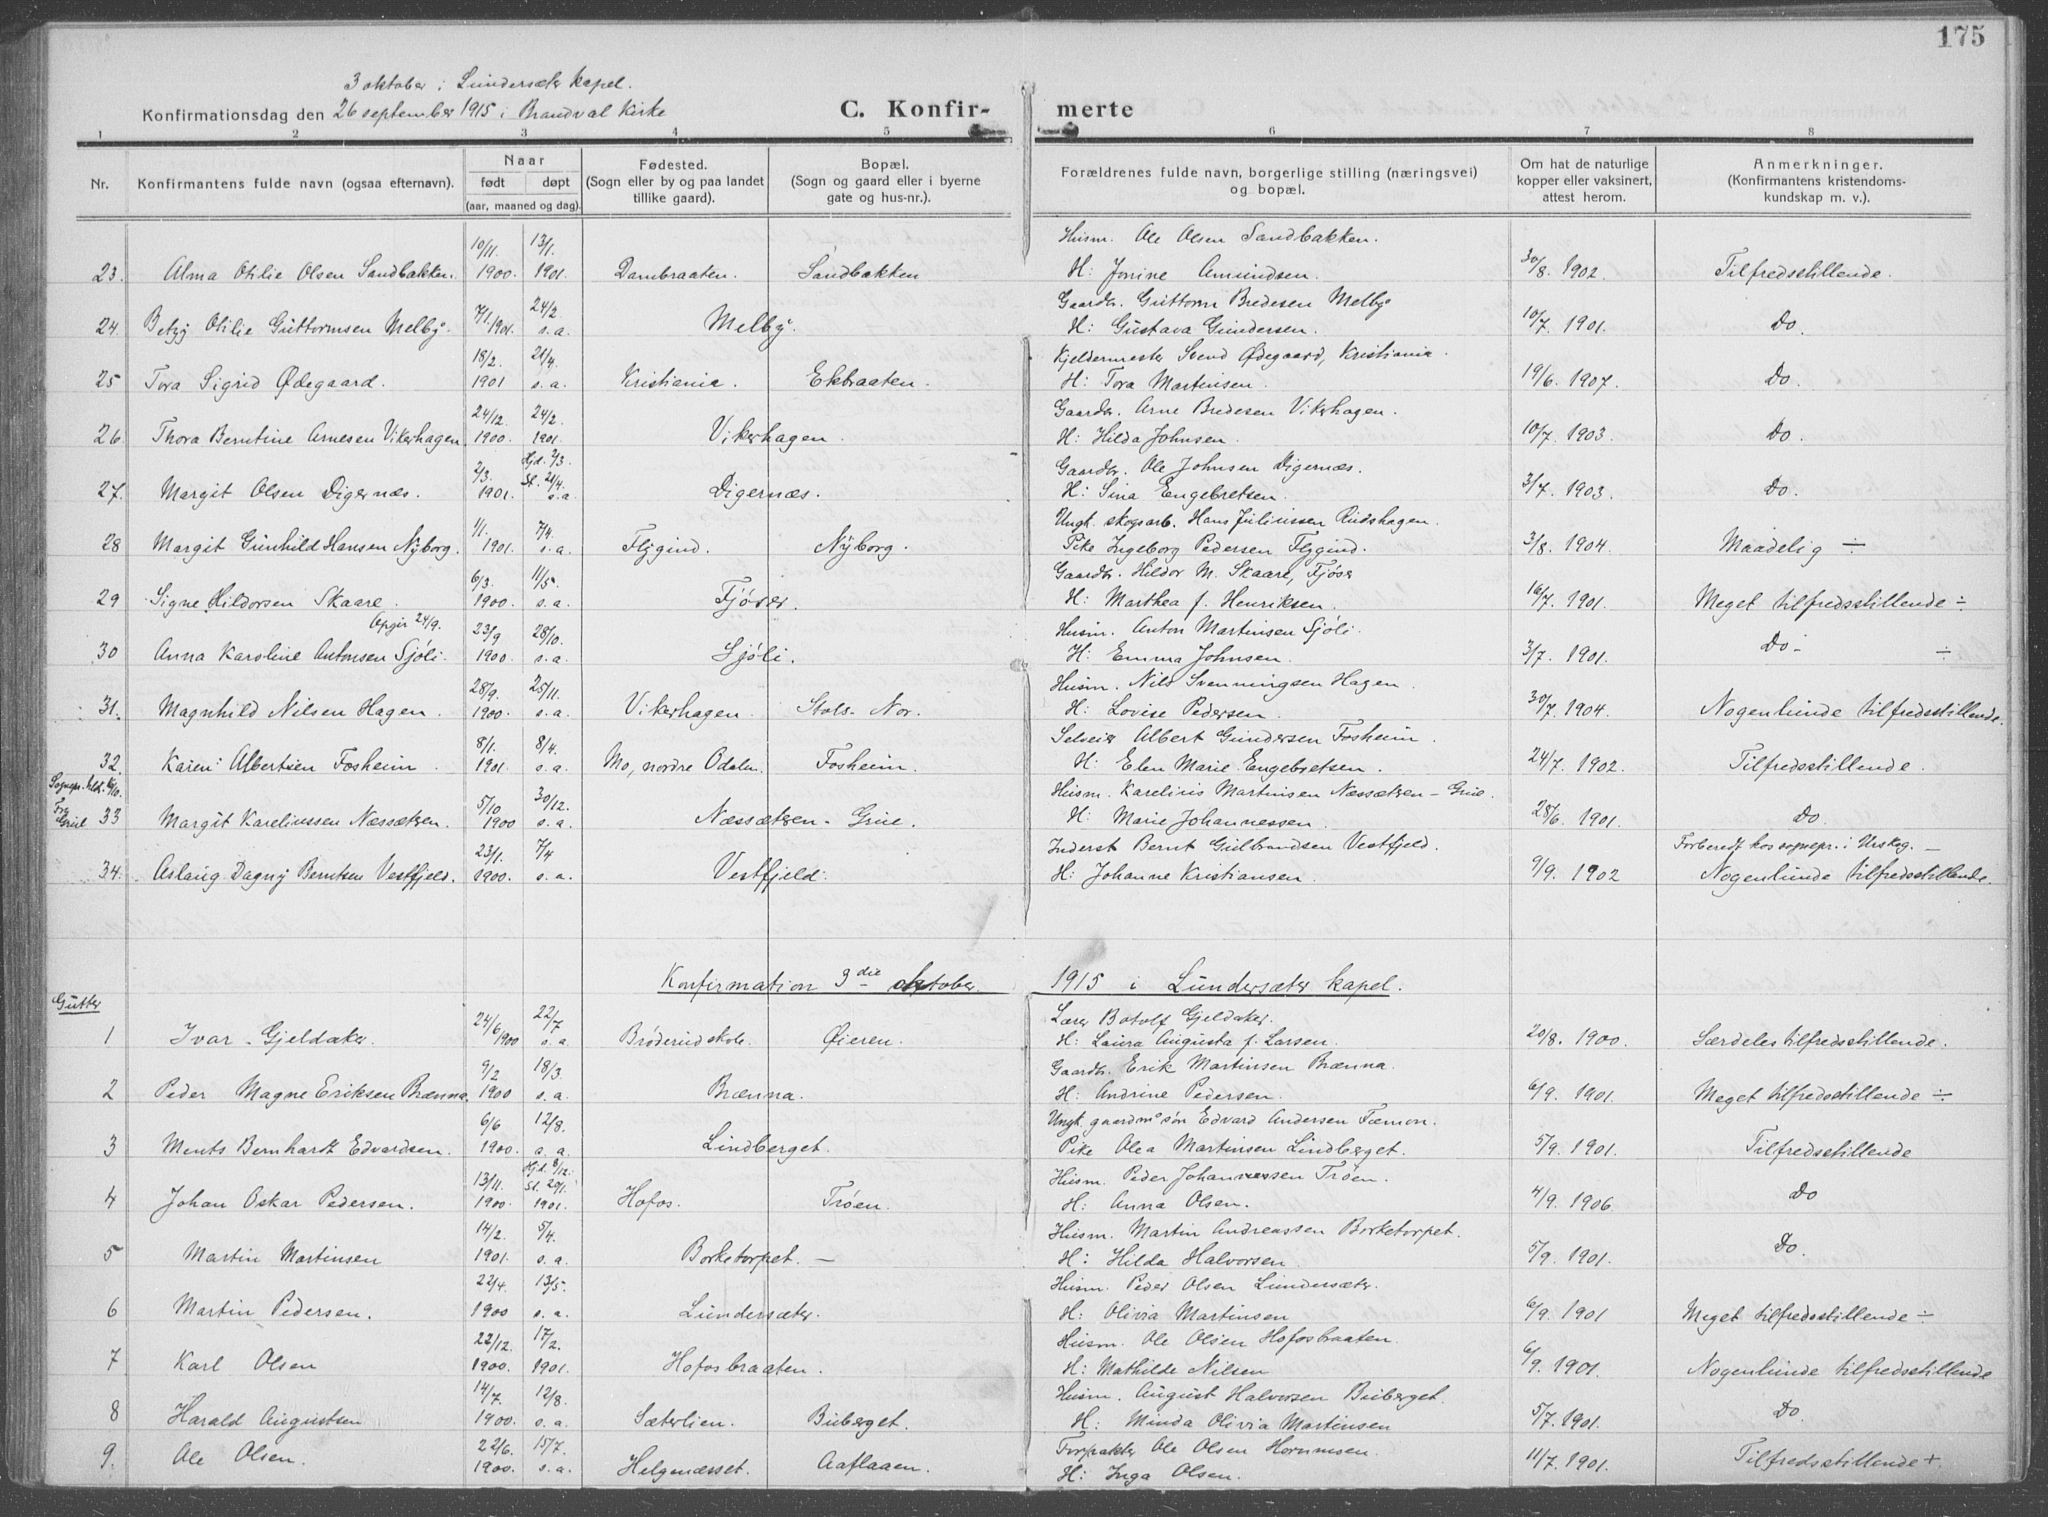 175
3 oktober i Lundersæter kapel.
Konfirmationsdag den 26 september 1915 i Brandval Kirke
C. Konfirmerte
1 2 3 4 5 6 7 8
Nr. Konfirmantens fulde navn (ogsaa efternavn). Naar født døpt (aar, maaned og dag). Fødested. (Sogn eller by og paa landet tillike gaard). Bopæl. (Sogn og gaard eller i byerne gate og hus-nr.). Forældrenes fulde navn, borgerlige stilling (næringsvei) og bopæl. Om hat de naturlige kopper eller vaksinert, attest herom. Anmerkninger. (Konfirmantens kristendomskundskap m. v.).
10/11. 13/1. Husm. Ole Olsen Sandbakken.
23. Alma Otilie Olsen Sandbakken. 1900. 1901. Dambraaten. Sandbakken H: Jonine Amundsen. 30/8. 1902. Tilfredsstillende.
24/2. Gaardbr. Guttorm Bredesen Melby
24. Betzy Otilie Guttormsen Melby. 7/1. 1901. s. a. Melby. H: Gustava Gundersen. 10/7. 1901. Do.
18/2. 21/4. Kjeldermester Svend Ødegaard, Kristiania.
25 Tora Sigrid Ødegaard. 1901 s. a. Kristiania. Ekbraaten. H: Tora Martinsen. 19/6. 1907. Do.
24/12. 24/2. Gaardbr. Arne Bredesen Vikerhagen.
26. Thora Berntine Arnesen Vikerhagen 1900. 1901. Vikerhagen. H: Hilda Johnsen. 10/7. 1903. Do.
2/3. Hjd. 2/3. St. 21/4. Gaardbr. Ole Johnsen Digernæs.
27. Margit Olsen Digernæs. 1901. s. a. Digernæs. H: Sina Engebretsen. 3/7. 1903. Do.
7/4. Ungk. skogsarb. Hans Juliussen Rudshagen.
28 Margit Gunhild Hansen Nyborg. 1901. s. a. Flygind. Nyborg. Pike Ingeborg Pedersen Flygind. 3/8. 1904. Maadelig ÷
6/3. 11/5. Gaardbr. Hildor M. Skaare, Fjøser
29 Signe Hildorsen Skaare. 1900. s. a. Fjøser. H: Marthea f. Henriksen. 16/7. 1901. Meget tilfredsstillende ÷
Opgir 24/9. 23/9 28/10. Husm. Anton Martinsen Sjøli.
30 Anna Karoline Antonsen Sjøli. 1900. s. a. Sjøli. H: Emma Johnsen. 3/7. 1901. Do - ÷
28/9. 25/11. Husm. Nils Svenningsen Hagen.
31. Magnhild Nilsen Hagen. 1900. s. a. Vikerhagen. Stols-Nor. H: Lovise Pedersen. 30/7. 1904. Nogenlunde tilfredsstillende.
8/1. 8/4. Selveier Albert Gundersen Fosheim.
32. Karen Albertsen Fosheim. 1901. s. a. Mo, nordre Odalen. Fosheim. H: Elen Marie Engebretsen. 24/7. 1902. Tilfredsstillende.
Sognepr. Fra Grue
5/10 30/12. Husm. Karelius Martinsen Næssætren - Grue.
33 Margit Kareliussen Næssætren. 1900 s. a. Næssætren - Grue. H: Marie Johannessen. 28/6. 1901. Do.
23/1. 7/4 Inderst Bernt Gulbrandsen Vestfjeld. Forberedt hos sognepr. i Urskog. -
34. Aslaug Dagny Berntsen Vestfjeld. 1900. s. a. Vestfjeld. H: Johanne Kristiansen. 9/9. 1902 Nogenlunde tilfredsstillende.
Konfirmation 3die oktober 1915 i Lundersæter kapel.
Gutter
24/6 22/7 Lærer Botolf Gjeldaker.
1 Ivar Gjeldaker. 1900 s. a. Brøderud skole. Øieren. H: Laura Augusta f. Larsen. 20/8. 1900. Særdeles tilfredsstillende.
9/2 18/3. Gaardbr. Erik Martinsen Brænna.
2 Peder Magne Eriksen Brænna. 1900 s. a. Brænna. H: Andrine Pedersen. 6/9. 1901. Meget tilfredsstillende ÷
6/6 12/8. Ungk. gaardm. søn Edvard Andersen Fæmon.
3 Ments Bernhardt Edvardsen. 1900. s. a. Lindberget. Pike Olea Martinsen Lindberget. 5/9. 1901. Tilfredsstillende
13/11. Hjd. 8/12. St. 20/1. Husm. Peder Johannessen Trøen.
4 Johan Oskar Pedersen. 1900. 1901. Hofos. Trøen. H: Anna Olsen. 4/9. 1906. Do
14/2. 5/4. Husm. Martin Andreassen Borketorpet.
5 Martin Martinsen 1901. s. a. Borketorpet. - H: Hilda Halvorsen. 5/9. 1901. Do.
22/4. 13/5. Husm. Peder Olsen Lundersæter.
6 Martin Pedersen. 1900 s. a. Lundersæter. H: Olivia Martinsen 6/9. 1901 Meget tilfredsstillende ÷
22/12. 17/2. Husm. Ole Olsen Hofosbraaten.
7 Karl Olsen 1900. 1901. Hofosbraaten. H: Mathilde Nilsen 6/9. 1901. Nogenlunde tilfredsstillende
14/7. 12/8. Husm. August Halvorsen Buberget.
8 Harald Augustsen 1900. s. a. Sæterlien. Buberget. H: Minda Olivia Martinsen 5/7. 1901. Do.
22/6. 15/7. Forpakter Ole Olsen Hornmsen.
9. Ole Olsen. 1900. s. a. Helgenæsset. Aaflaaen. H: Inga Olsen. 11/7. 1901. Tilfredsstillende +.